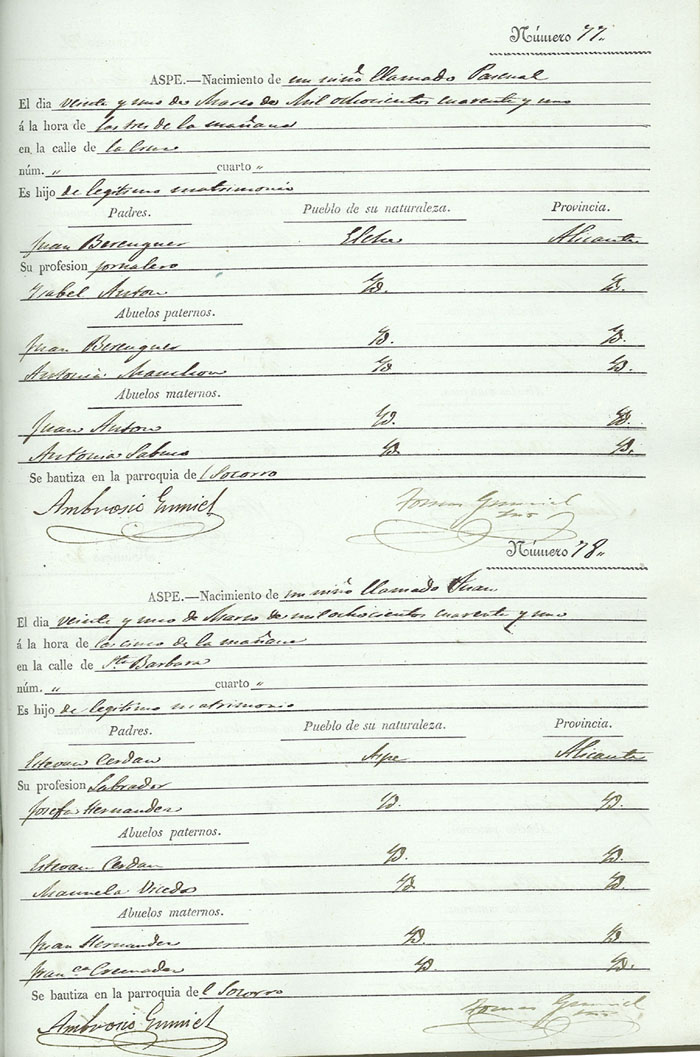 Número 77.
ASPE.—Nacimiento de un niño llamado Pascual
El dia veinte y uno de Marzo de Mil ochocientos cuarenta y uno
á la hora de las tres de la mañana
en la calle de la Cruz
núm. „ cuarto „
Es hijo de legitimo matrimonio
Padres. Pueblo de su naturaleza. Provincia.
Juan Berenguer Elche Alicante
Su profesion jornalero
Ysabel Anton Yd. Yd.
Abuelos paternos.
Juan Berenguer Yd. Yd.
Antonia Yd. Yd.
Abuelos maternos.
Juan Anton Yd. Yd.
Antonia Yd. Yd.
Se bautiza en la parroquia del Socorro
Ambrosio Tomas
Número 78.
ASPE.—Nacimiento de un niño llamado Juan
El dia veinte y uno de Marzo de mil ochocientos cuarenta y uno
á la hora de las cinco de la mañana
en la calle de Sta Barbara
núm. „ cuarto „
Es hijo de legitimo matrimonio
Padres. Pueblo de su naturaleza. Provincia.
Estevan Cerdan Aspe Alicante
Su profesion Labrador
Josefa Hernandez Yd. Yd.
Abuelos paternos.
Estevan Cerdan Yd. Yd.
Manuela Vicedo Yd. Yd.
Abuelos maternos.
Juan Hernandez Yd. Yd.
Franca Cremades Yd. Yd.
Se bautiza en la parroquia del Socorro
Ambrosio Tomas